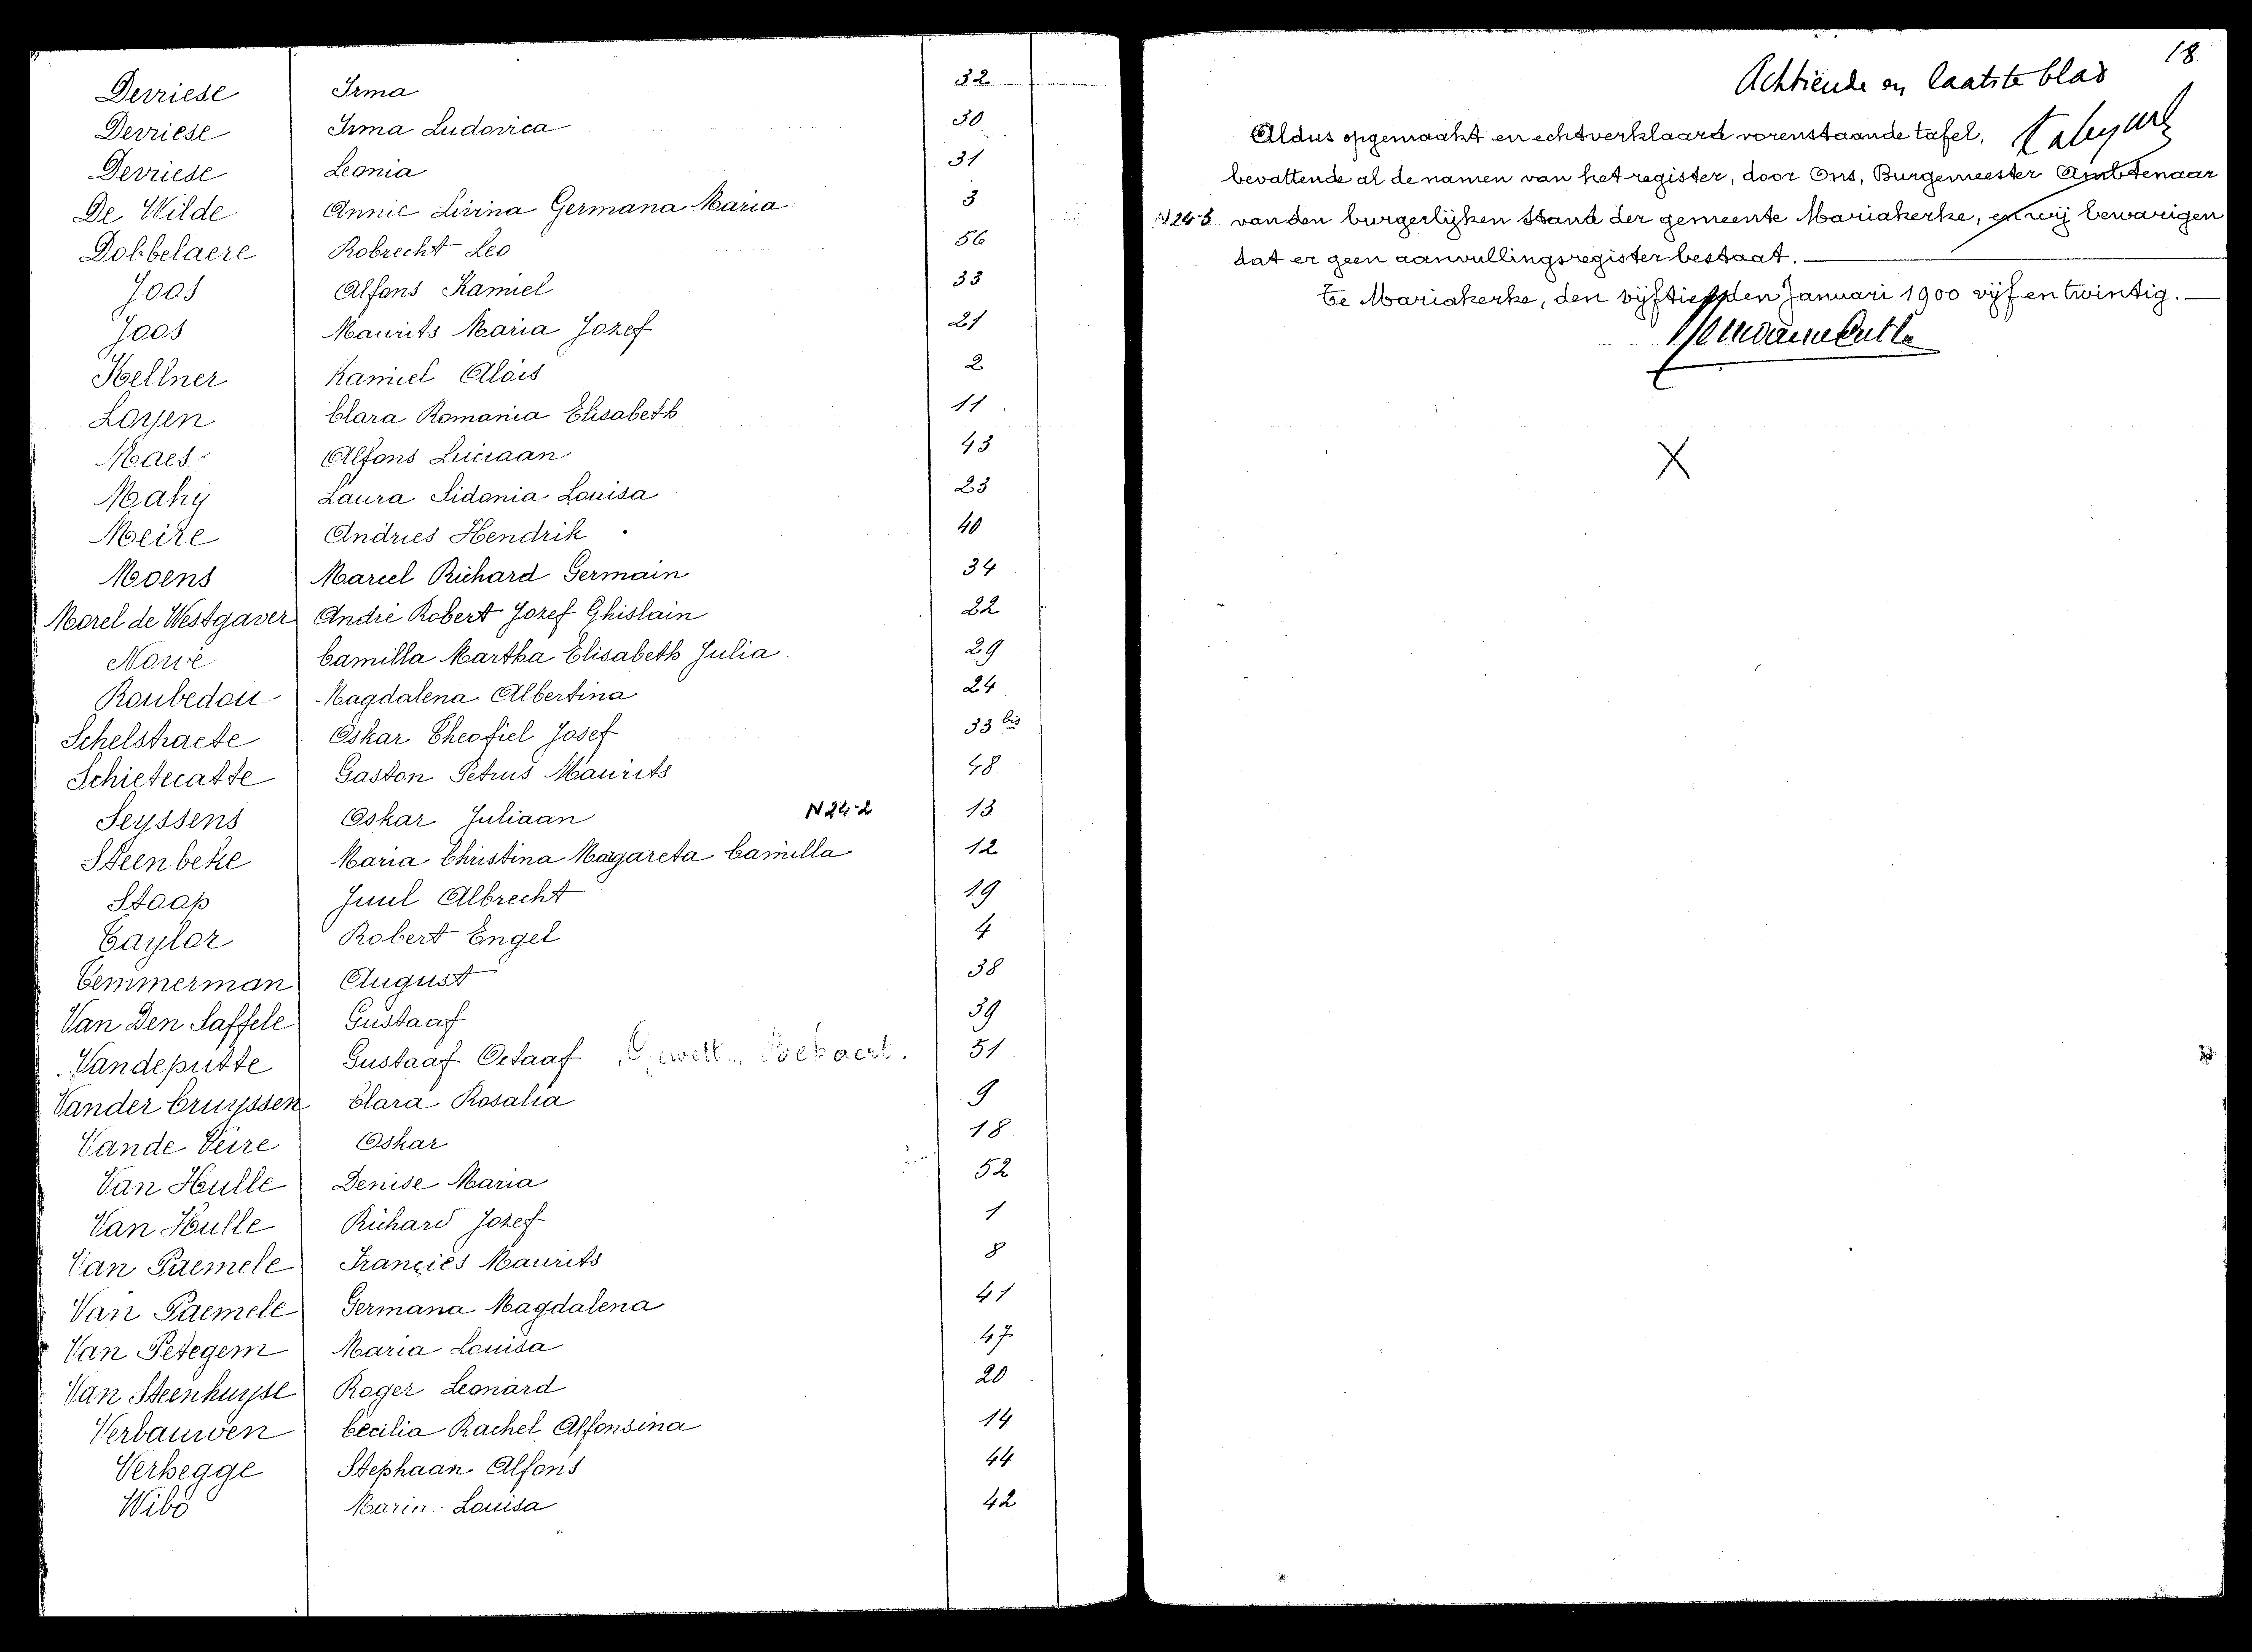 Devriese Irma 32
Devriese Irma Ludovica 30
Devriese Leonia 31
De Wilde Annie Livina Germana Maria 3
Dobbelaere Robrecht Leo 56
Joos Alfons Kamiel 33
Joos Maurits Maria Jozef 21
Kellner Kamiel Aloïs 2
Loyen Clara Romania Elisabeth 11
Maes Alfons Luciaan 43
Mahy Laura Sidonia Louisa 23
Meire Andries Hendrik 40
Moens Marcel Richard Germain 34
Morel de Westgaver André Robert Jozef Ghislain 22
Nowé Camilla Martha Elisabeth Julia 29
Roubedou Magdalena Albertina 24
Schelstraete Oskar Theofiel Josef 33 bis
Schietecatte Gaston Petrus Maurits 48
Seyssens Oskar Juliaan N24-2 13
Steenbeke Maria Christina Magareta Camilla 12
Staop Juul Albrecht 19
Taylor Robert Engel 4
Temmerman August 38
Van Den Saffele Gustaaf 39
Vandeputte Gustaaf Octaaf Bekaert. 51
Vander Cruyssen Clara Rosalia 9
Vande Veire Oskar 18
Van Hulle Denise Maria 52
Van Hulle Richard Jozef 1
Van Paemele Franciës Maurits 8
Van Paemele Germana Magdalena 41
Van Petegem Maria Louisa 47
Van Steenhuyse Roger Leonard 20
Verbauwen Cecilia Rachel Alfonsina 14
Verhegge Stephaan Alfons 44
Wibo Maria Louisa 42
18
Achtiende en laatste blad
Aldus opgemaakt en echtverklaard vorenstaande tafel,
bevattende al de namen van het register, door Ons, Burgemeester Ambtenaar
N24-3 van den burgerlijken Stand der gemeente Mariakerke, en wij bewarigen
dat er geen aanvullingsregister bestaat.
Te Mariakerke, den vijftienden Januari 1900 vijf en twintig.
X